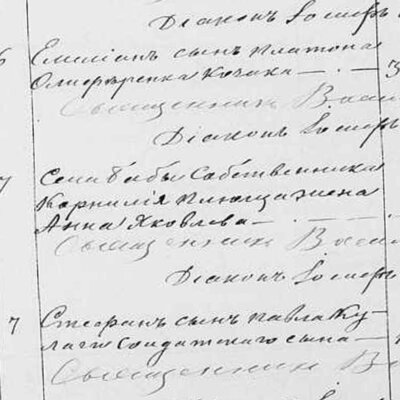 Діаконъ Іосифъ
6 Емиліанъ сынъ Платона
Олифѣренка Козака — . — 3
Священникъ Васил
Діаконъ Іосифъ
7 Села Бабы Собственника
Корнилія жена
Анна Яковлева —
Священникъ Васил
Діаконъ Іосифъ
7 Стефанъ сынъ Павла Ку-
лаго Солдатскаго сына —
Священникъ В